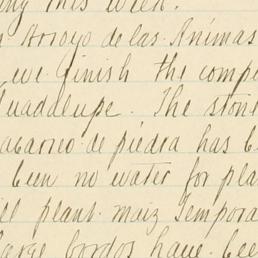 this week.
Arroyo de las Animas
we finish the comp
Guadalupe. The stone
acarreo de piedra has b
been no water for pla
plant maiz Tempora
large bordos have bee